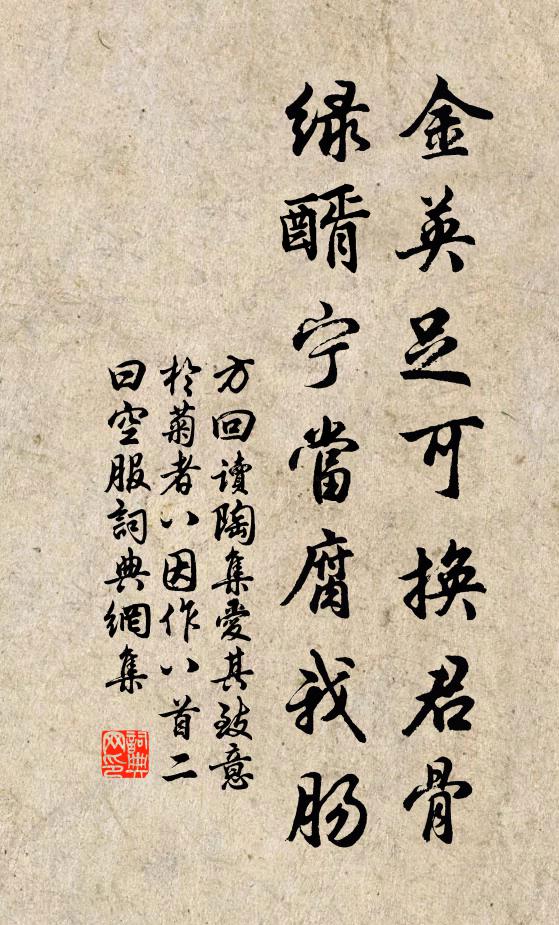 金英足可換君骨
緑醑宁當腐我肠
方回讀陶集愛其致意
於菊者八因作八首二
曰空服詞典網集
詞典網印